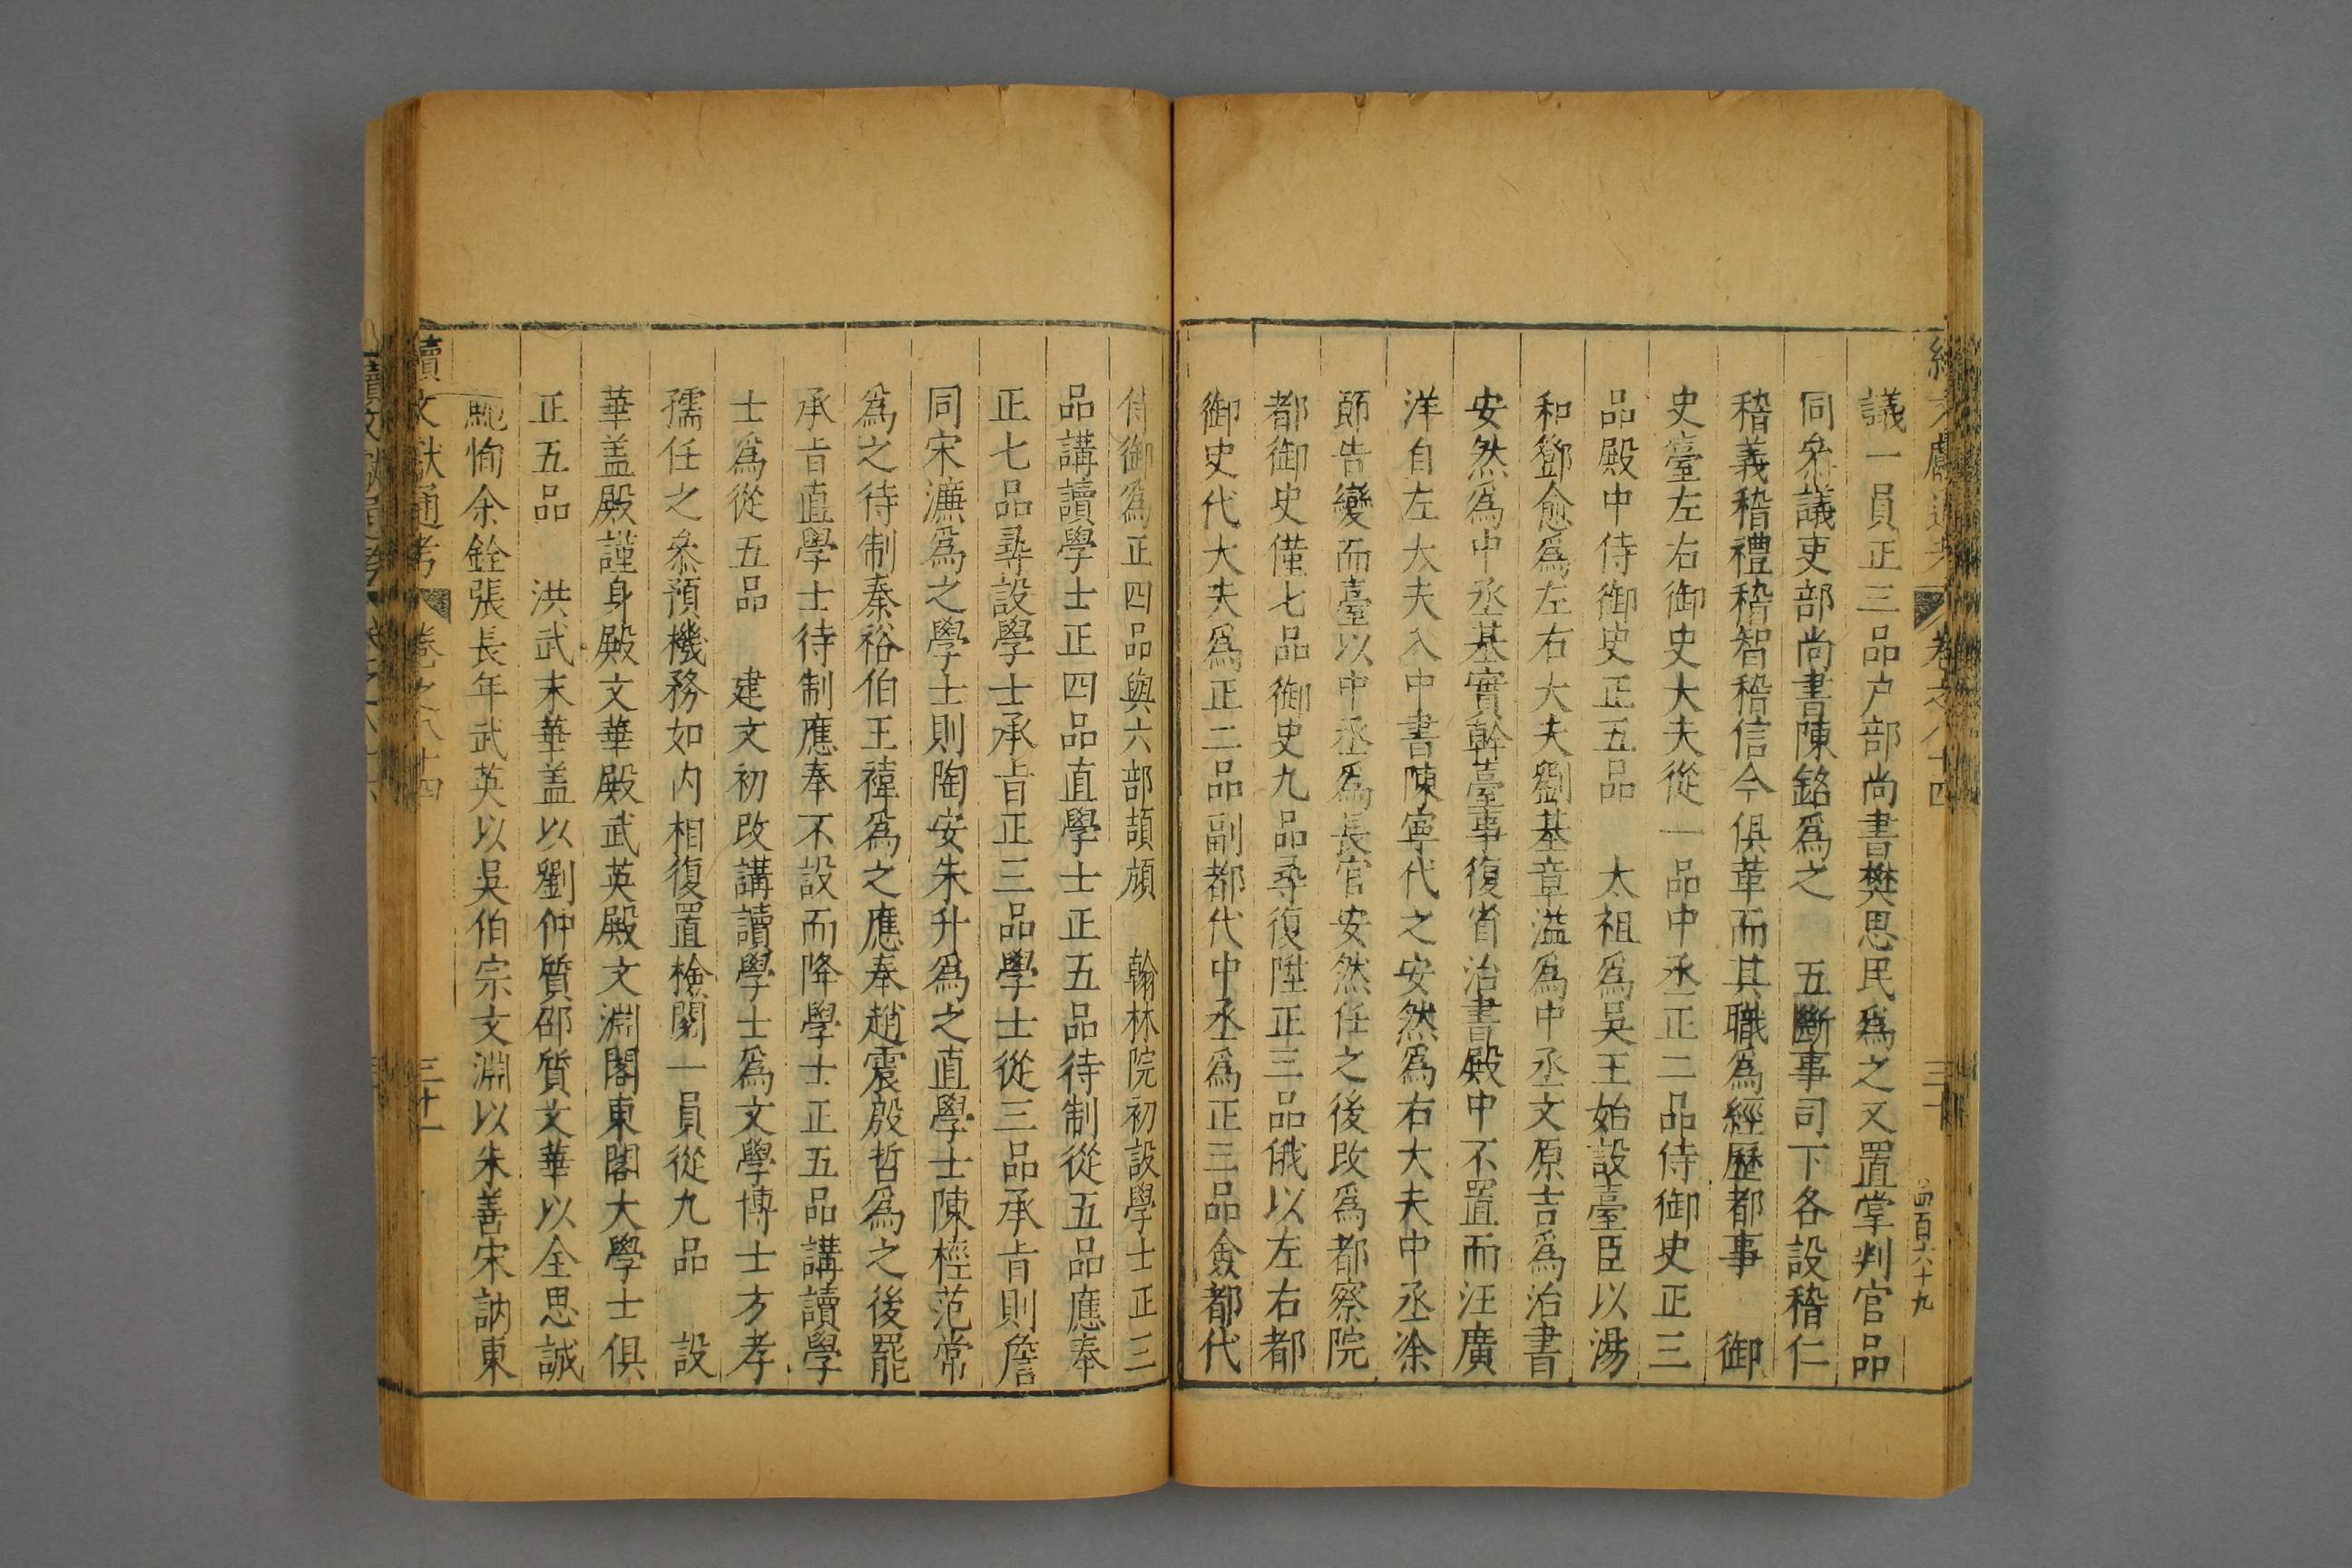 議一員正三品户部尚書樊思民爲之又置掌判官品
同叅議吏部尚書陳銘爲之　五斷事司下各設稽仁
稽義稽禮稽智稽信今俱革而其職爲經歷都事　御
史臺左右御史大夫從一品中丞正二品侍御史正三
品殿中侍御史正五品　太祖爲吳王始設臺臣以湯
和鄧愈爲左右大夫劉基章溢爲中丞文原吉爲治書
安然爲中丞基實幹臺事復省治書殿中不置而汪廣
洋自左大夫入中書陳寧代之安然爲右大夫中丞涂
節告變而臺以中丞爲長官安然任之後改爲都察院
都御史僅七品御史九品尋復陞正三品俄以左右都
御史代大夫爲正二品副都代中丞爲正三品僉都代
侍御爲正四品與六部頡頏　翰林院初設學士正三
品講讀學士正四品直學士正五品待制從五品應奉
正七品尋設學士承旨正三品學士從三品承旨則詹
同宋濂爲之學士則陶安朱升爲之直學士陳桱范常
爲之待制秦裕伯王禕爲之應奉趙震殷哲爲之後罷
承旨直學士待制應奉不設而降學士正五品講讀學
士爲從五品　建文初改講讀學士爲文學博士方孝
孺任之叅預機務如内相復置檢閱一員從九品　設
華盖殿謹身殿文華殿武英殿文淵閣東閣大學士俱
正五品　洪武末華盖以劉仲質邵質文華以全思誠
鮑恂余銓張長年武英以吳伯宗文淵以朱善宋訥東
續文獻通考　卷之八十四　三十一
四百六十九